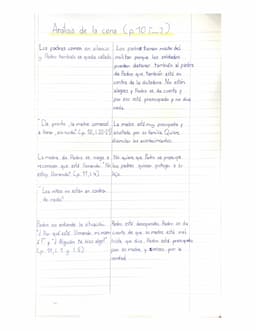 Análisis de la cena (p. 10 ; ...)
Los padres comen en silencio
y Pedro también se queda callado
Los padres tienen miedo del
militar porque los soldados
pueden detener también al padre
de Pedro que también está en
contra de la dictadura. No están
alegres y Pedro se da cuenta y
por eso está preocupado y no dice
nada.
"De pronto, la madre comenzó
a llorar, sin ruido" (p. 10, l.
La madre está muy preocupada y
asustada por su familia. Quiere
disimular los sentimientos.
La madre de Pedro se niega a
reconocer que está llorando. "No
estoy llorando" (p. 11, l. 4)
No quiere que Pedro se preocupe.
Los padres quieren proteger a su
hijo.
"Los niños no están en contra
de nada"
Pedro no entiende la situación.
"¿Por qué está llorando mi mamá
?" y "¿Alguien te hizo algo?"
(p. 11, l. 1 y l. 5)
Pedro está desesperado. Pedro se da
cuenta de que su madre está más
triste que dice. Pedro está preocupado
por su madre y por la
verdad.